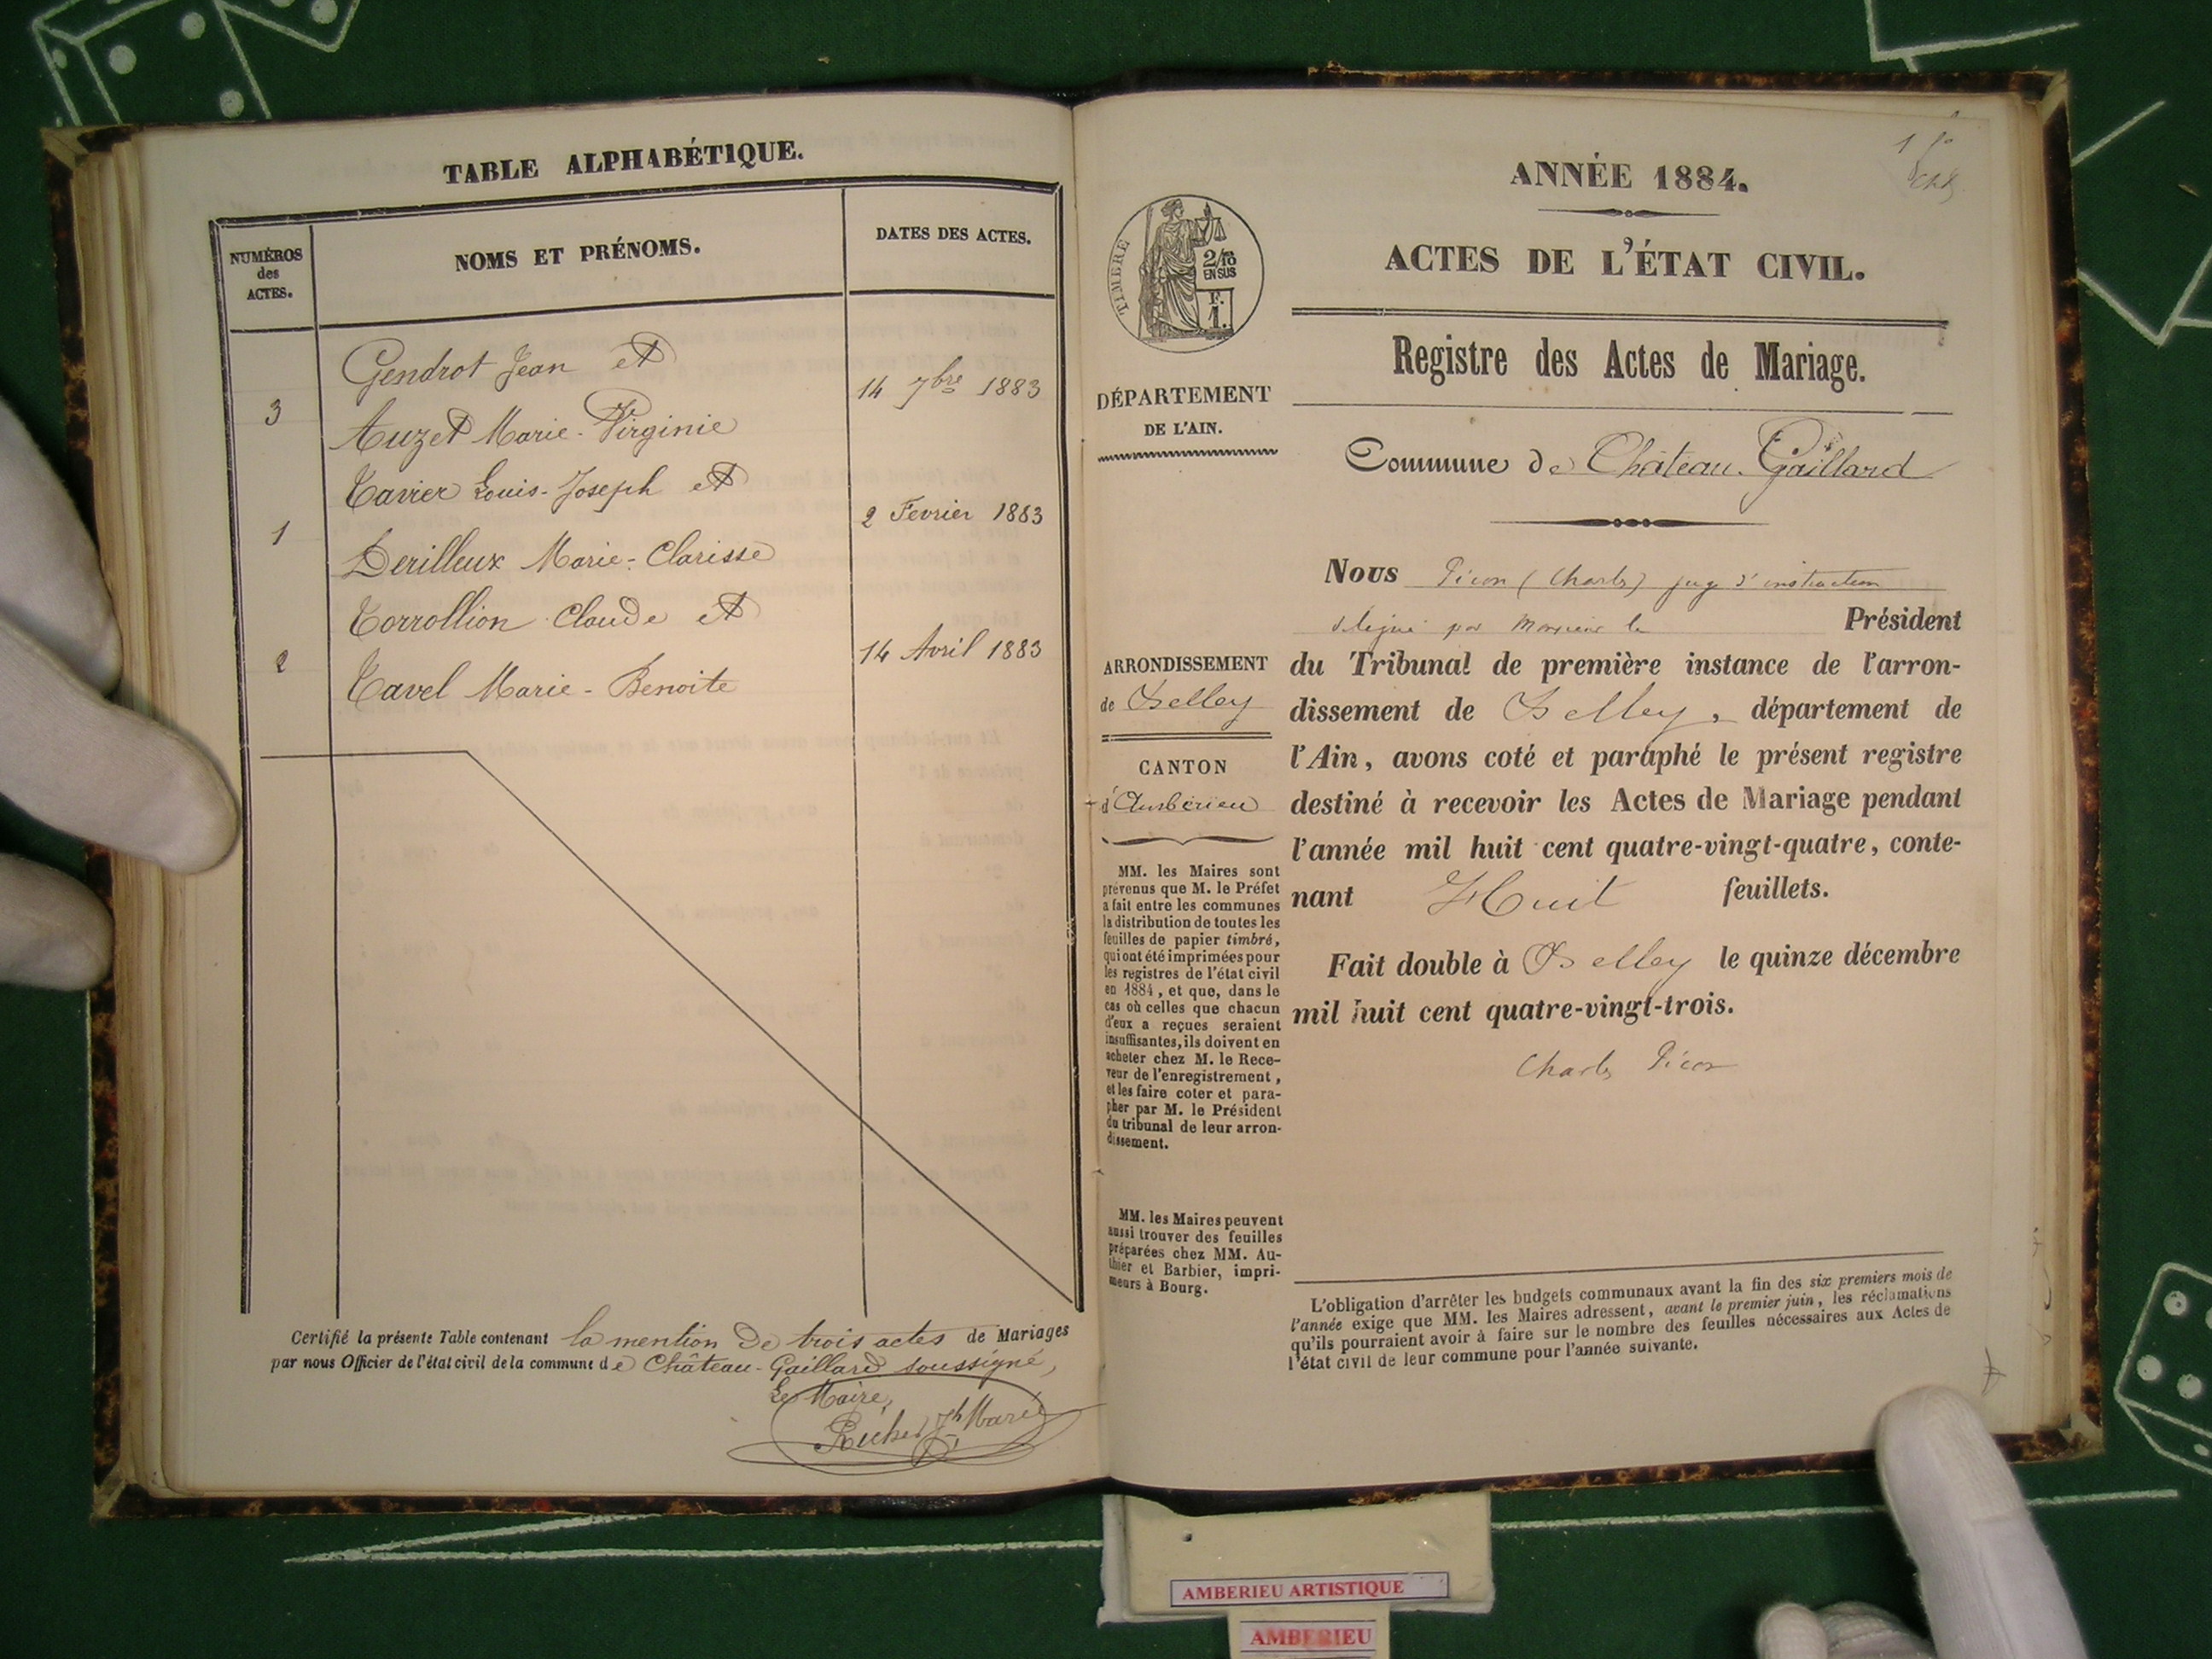 TABLE ALPHABÉTIQUE.
NUMÉROS
des
ACTES.
NOMS ET PRÉNOMS.
DATES DES ACTES.
Gendrot Jean et
3
14 7bre 1883
Auzet Marie-Virginie
Tavier Louis-Joseph et
1
2 Fevrier 1883
Derilleux Marie-Clarisse
Torrollion Claude et
2
14 Avril 1883
Tavel Marie-Benoite
Certifié la présente Table contenant la mention de trois actes de Mariages
par nous Officier de l'état civil de la commune de Château-Gaillard soussigné,
Le Maire,
Richer Jh Marie
1
TIMBRE
2/10
EN SUS
F.
1.
DÉPARTEMENT
DE L'AIN.
ARRONDISSEMENT
de Belley
CANTON
d'Ambérieu
MM. les Maires sont
prévenus que M. le Préfet
a fait entre les communes
la distribution de toutes les
feuilles de papier timbré,
qui ont été imprimées pour
les registres de l'état civil
en 1884, et que, dans le
cas où celles que chacun
d'eux a reçues seraient
insuffisantes, ils doivent en
acheter chez M. le Rece-
veur de l'enregistrement,
et les faire coter et para-
pher par M. le Président
du tribunal de leur arron-
dissement.
MM. les Maires peuvent
aussi trouver des feuilles
préparées chez MM. Au-
thier et Barbier, impri-
meurs à Bourg.
ANNÉE 1884.
ACTES DE L'ÉTAT CIVIL.
Registre des Actes de Mariage.
Commune de Château-Gaillard
Nous Picon (Charles) juge d'instruction
délégué par Monsieur le Président
du Tribunal de première instance de l'arron-
dissement de Belley, département de
l'Ain, avons coté et paraphé le présent registre
destiné à recevoir les Actes de Mariage pendant
l'année mil huit cent quatre-vingt-quatre, conte-
nant Huit feuillets.
Fait double à Belley le quinze décembre
mil huit cent quatre-vingt-trois.
Charles Picon
L'obligation d'arrêter les budgets communaux avant la fin des six premiers mois de
l'année exige que MM. les Maires adressent, avant le premier juin, les réclamations
qu'ils pourraient avoir à faire sur le nombre des feuilles nécessaires aux Actes de
l'état civil de leur commune pour l'année suivante.
AMBERIEU ARTISTIQUE
AMBERIEU